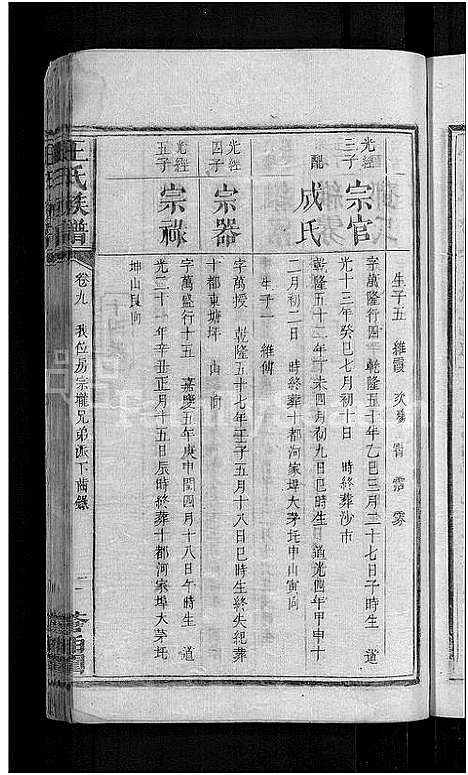 生子五 維霞 次 霑 雰
光經三子
宗官
字萬隆行四 乾隆五十年乙巳三月二十七日子時生 道
光十三年癸巳七月初十日 時終葬沙市
配
成氏
乾隆五十二年丁未四月初九日巳時生 道光四年甲申十
二月初二日 時終葬十都河家埠大茅圫申山寅向
生子一 維傳
光經四子
宗器
字萬授 乾隆五十七年壬子五月十八日巳時生終失紀葬
十都東塘坪 山 向
光經五子
宗祿
字萬盛行十五 嘉慶五年庚申閏四月十八日午時生 道
光二十一年辛丑正月十五日辰時終葬十都河家埠大茅圫
坤山艮向
王氏族譜
卷九 房宗 兄弟派下齒錄